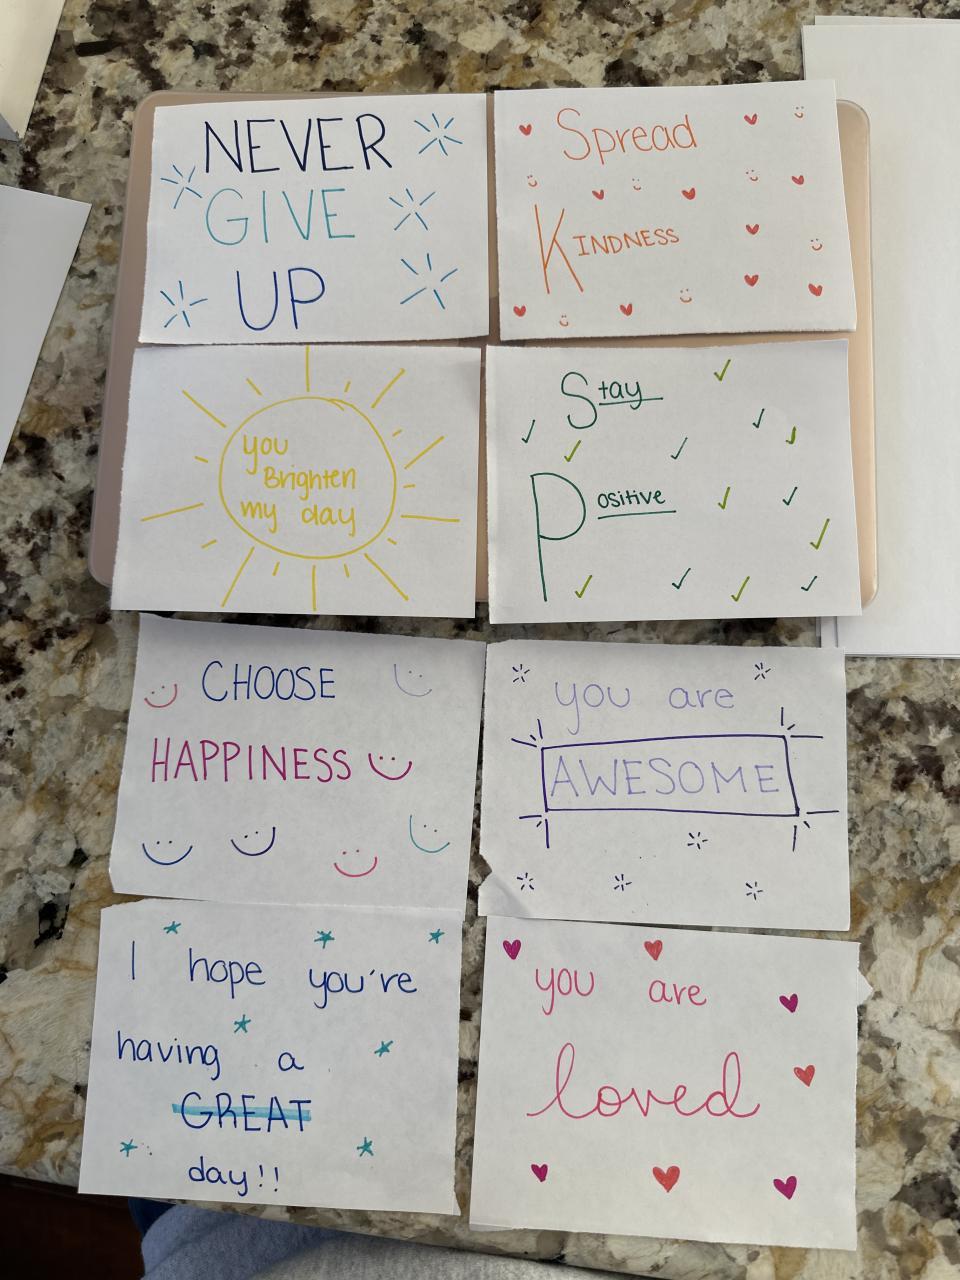 NEVER
GIVE
UP
Spread
KINDNESS
you
Brighten
my day
Stay
Positive
CHOOSE
HAPPINESS
you are
AWESOME
I hope you're
having a
GREAT
day!!
you are
loved